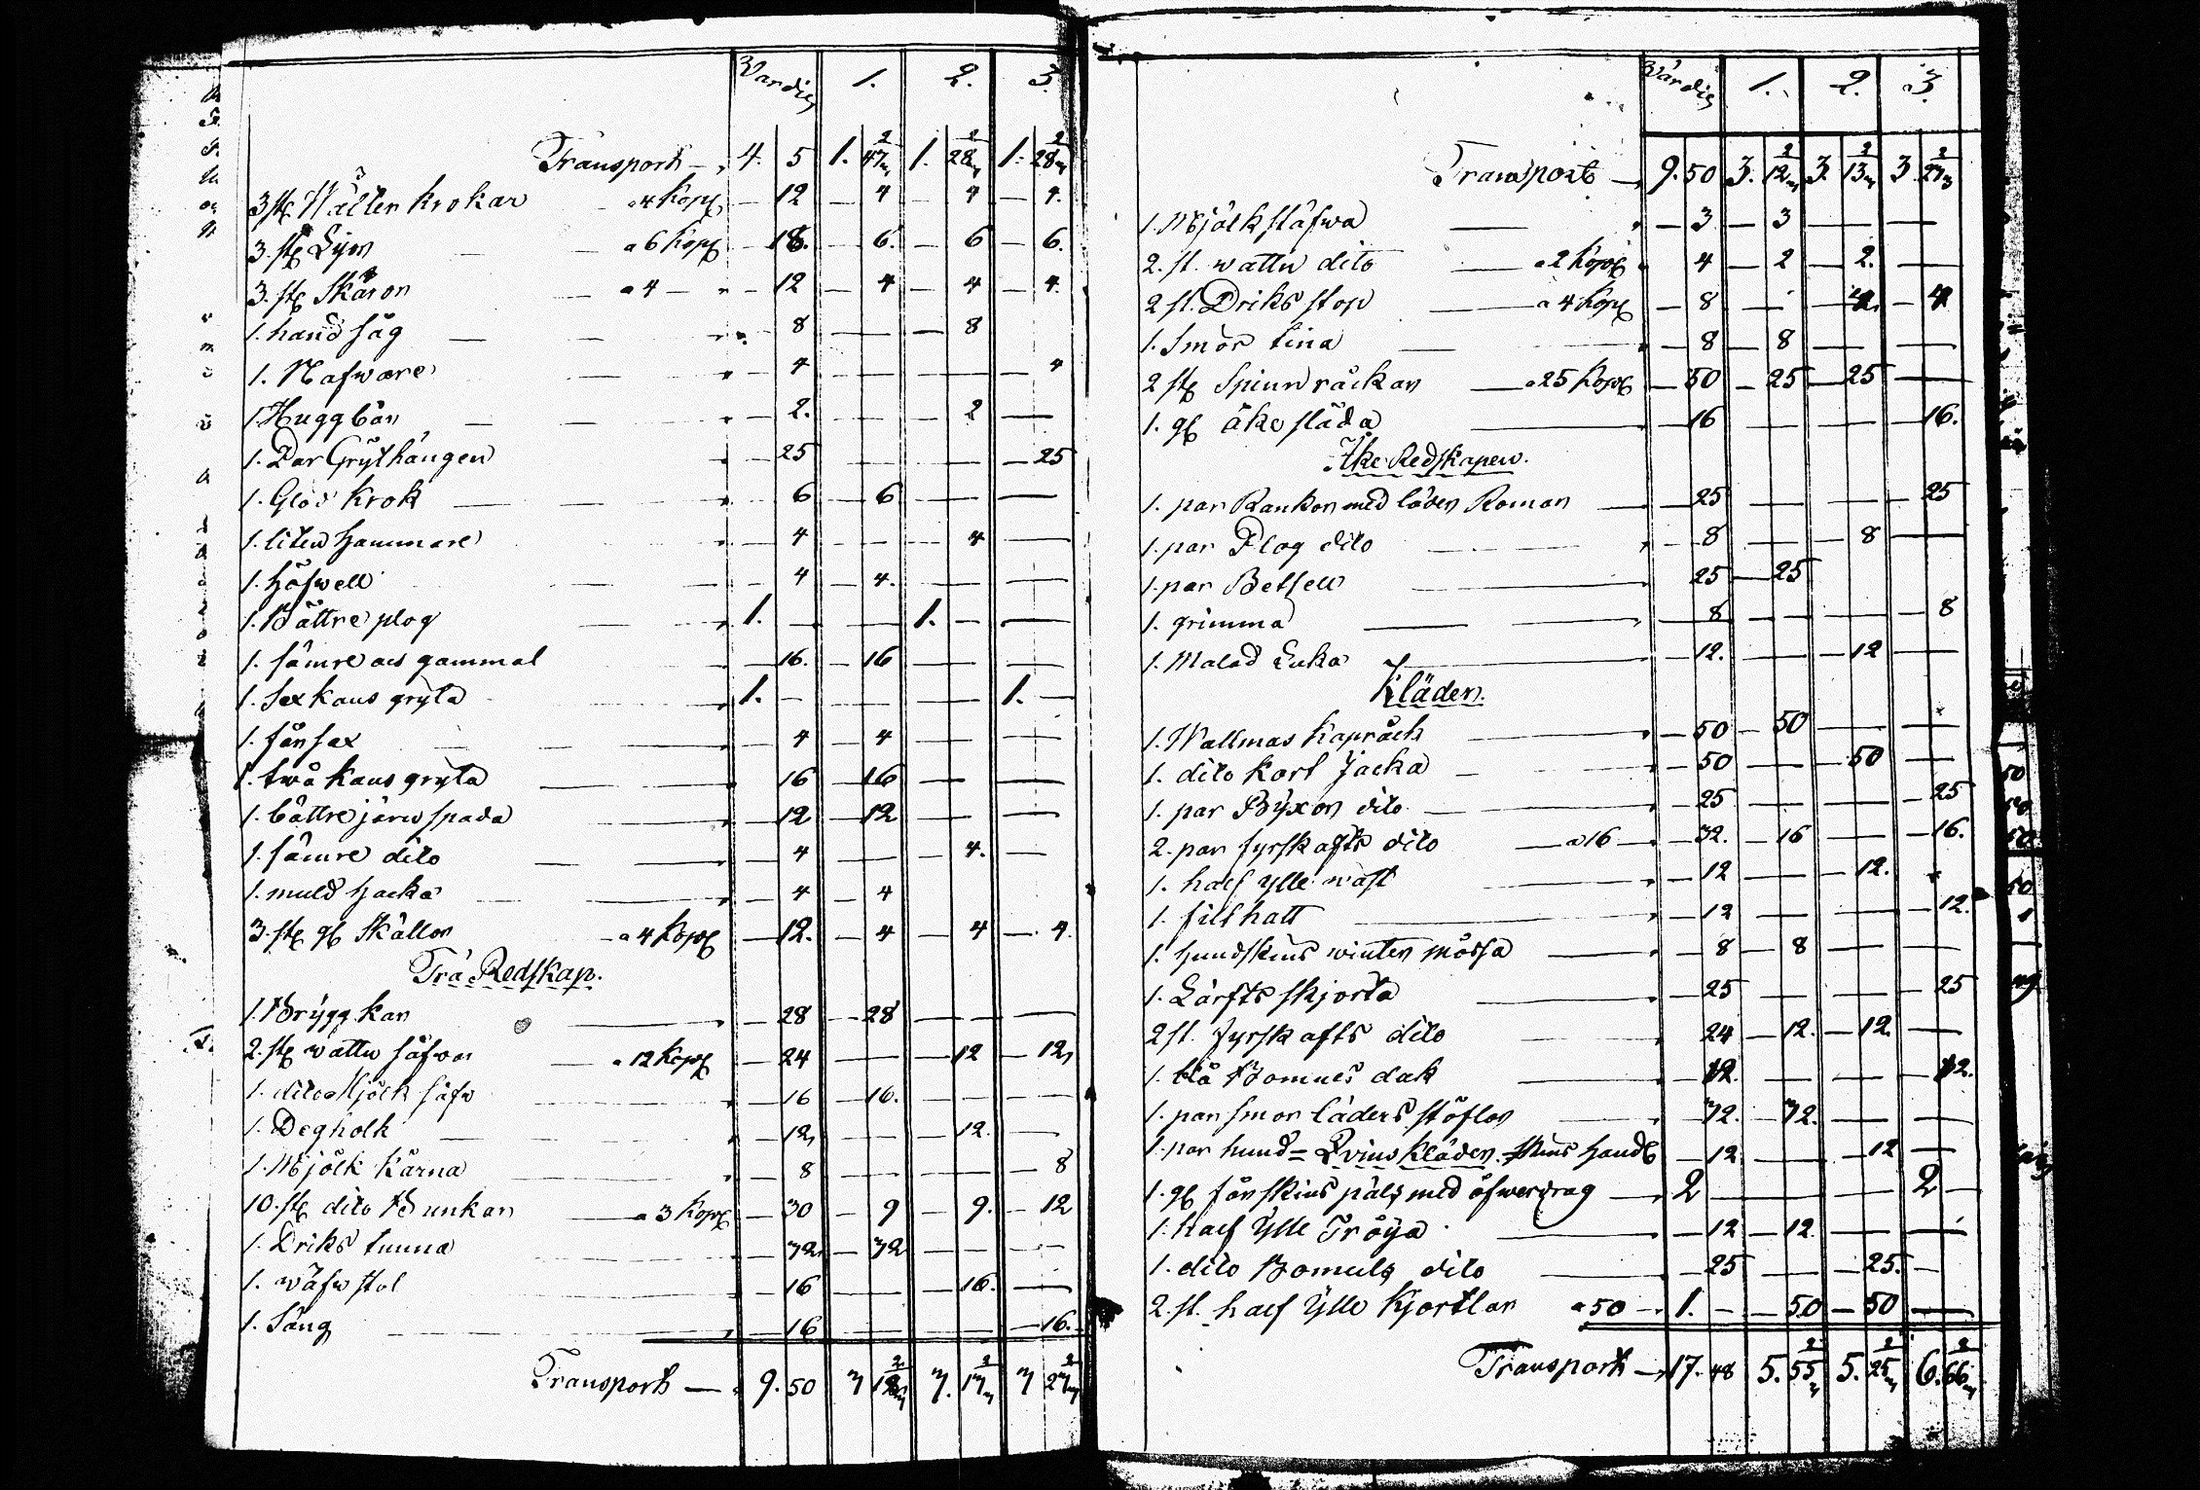 Värdie 1. 2. 3.
Transport — 4. 5 1. 47 2/3 1. 28 2/3 1. 28 2/3
3 st. Wälter krokar a 4 kop. — 12 — 4 — 4 — 4.
3. st. Lijor a 6 kop. — 18. — 6. — 6 — 6.
3. st. Skäron a 4 — 12 — 4 — 4 — 4.
1. hand såg — 8 — — 8
1. Nafware — 4 — — — 4
1. Huggbår — 2. — — 2 —
1. Par Grythängen — 25 — — — 25
1. Glöd krok — 6 — 6 — —
1. liten hammare — 4 — — 4 —
1. Höfwell — 4 — 4. — —
1. Bättre plog 1. — — 1. — —
1. sämre och gammal — 16. — 16 — —
1. Sex kans gryta 1. — — — 1. —
1. fårsax — 4 — 4 — —
1. twå kans gryta 16 — 16 — —
1. bättre järn spada — 12 — 12 — —
1. sämre dito — 4 — — 4. —
1. muld hacka — 4 — 4
3. st. gl. Skällor a 4 kop. — 12. — 4 — 4 — 4.
Trä Redskap.
1. Brygg kar — 28 — 28 — —
2. st. wattu såfwar a 12 kop. — 24 — — 12 — 12
1. dito Mjölk såfw — 16 — 16. — —
1. Degholk — 12 — — 12. —
1. Mjölk kärna — 8 — — — 8
10. st. dito Bunkar a 3 kop. — 30 — 9 — 9. — 12
1. Driks tunna — 32 — 32 — —
1. wäfwstol — 16 — — 16. —
1. Säng — 16 — — — 16.
Transport — 9. 50 3 12 2/3 3. 13 2/3 3 23 2/3
Värdie 1. 2. 3.
Transport — 9. 50 3. 12 2/3 3. 13 2/3 3 23 2/3
1. Mjölkstäfwa — 3 — 3 — —
2. st. wattu dito a 2 kop. 4 — 2 — 2. —
2 st. Driks stop a 4 kop. — 8 — — 4 — 4
1. Smör tina — 8 — 8 — —
2 st. Spinn råckar a 25 kop. — 50 — 25 — 25 —
1. gl. åke släda — 16 — — — 16.
Åke Redskapen.
1. par Rankor med läder Roman — 25 — — — 25
1. par Plog dito — 8 — — 8 —
1. par Betsell 25 — 25
1. grimma — 8 — — — 8
1. Malad Luka — 12. — — 12
Kläder.
1. Wallmas kapråck — 50 — 50 — —
1. dito kort Jacka — 50 — — 50 —
1. par Byxor dito — 25 — — — 25
2. par fyrskafts dito a 16 — 32. — 16 — — 16.
1. half ylle wäst — 12 — — 12.
1. filt hatt — 12 — — — 12.
1. hundskins winter mössa — 8 — 8 — —
1. Lärfts skjorta — 25 — — — 25
2 st. fyrskafts dito 24 — 12. — 12 —
1. blå Bomuls duk — 12. — — — 12.
1. par smorläders stöflor — 32. — 32. — —
1. par hund= skins handl. — 12 — — 12 —
Qvins Kläder.
1. gl. fårskins päls med öfwerdrag 2 — — — 2 —
1. half Ylle Tröya — 12 — 12. — —
1. dito Bomuls dito — 25 — — 25. —
2. st. half Ylle kjortlar a 50 — 1. — — 50 — 50 —
Transport — 17. 48 5. 55 2/3 5. 25 2/3 6. 66 2/3